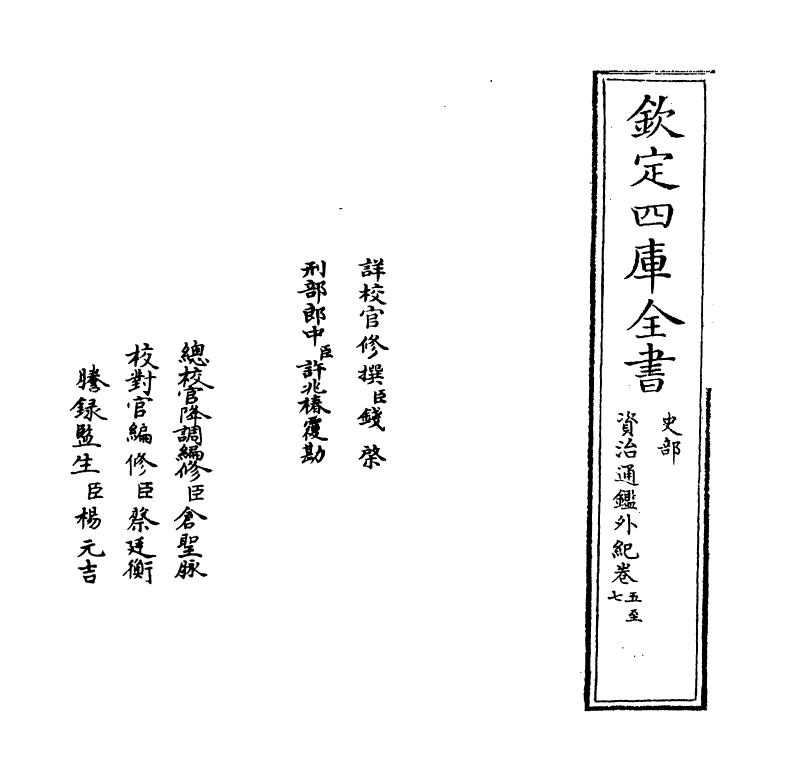 欽定四庫全書
史部
資治通鑑外紀卷五至七
詳校官修撰臣錢棨
刑部郎中臣許兆椿覆勘
總校官降調編修臣倉聖脉
校對官編修臣蔡廷衡
謄録監生臣楊元吉